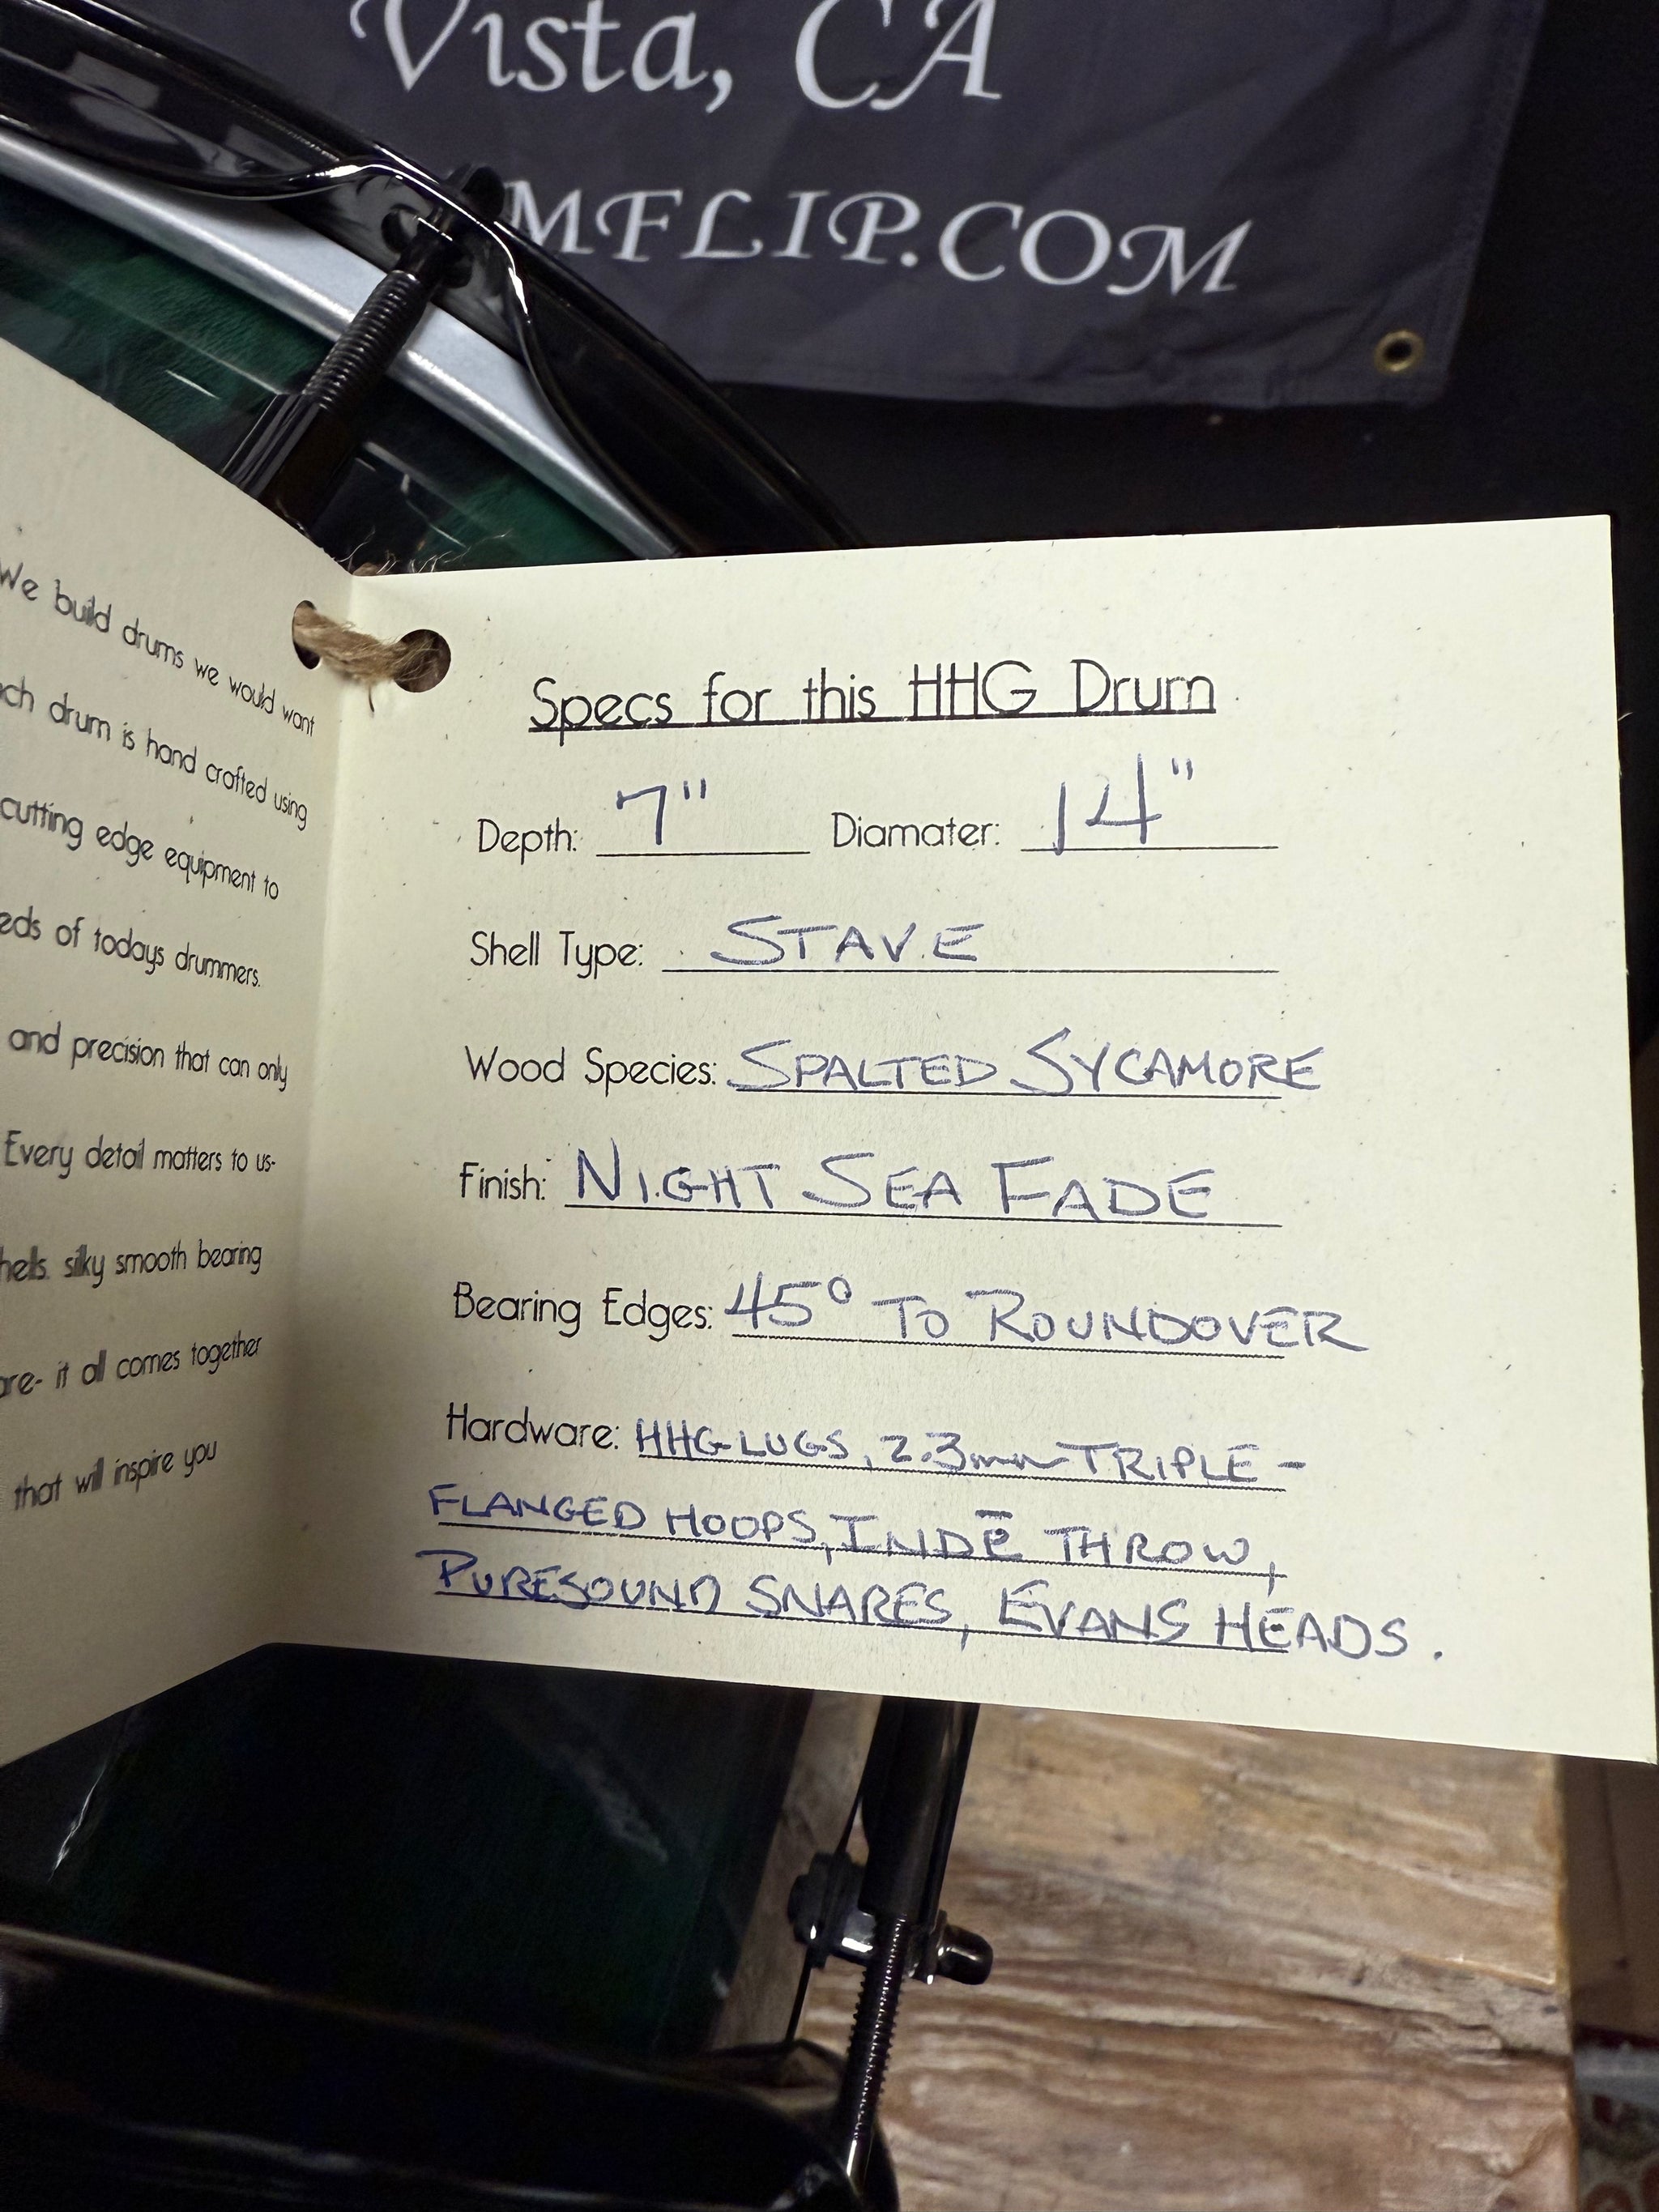 Vista, CA
MFLIP.COM
We build drums we would want
drum is hand crafted using
cutting edge equipment to
of todays drummers.
and precision that can only
Every detail matters to us-
silky smooth bearing
it all comes together
that will inspire you
Specs for this HHG Drum
Depth: 7" Diamater: 14"
Shell Type: STAVE
Wood Species: SPALTED SYCAMORE
Finish: NIGHT SEA FADE
Bearing Edges: 45° TO ROUNDOVER
Hardware: HHG LUGS, 2.3mm TRIPLE-
FLANGED HOOPS, INDĒ THROW,
PURESOUND SNARES, EVANS HEADS.